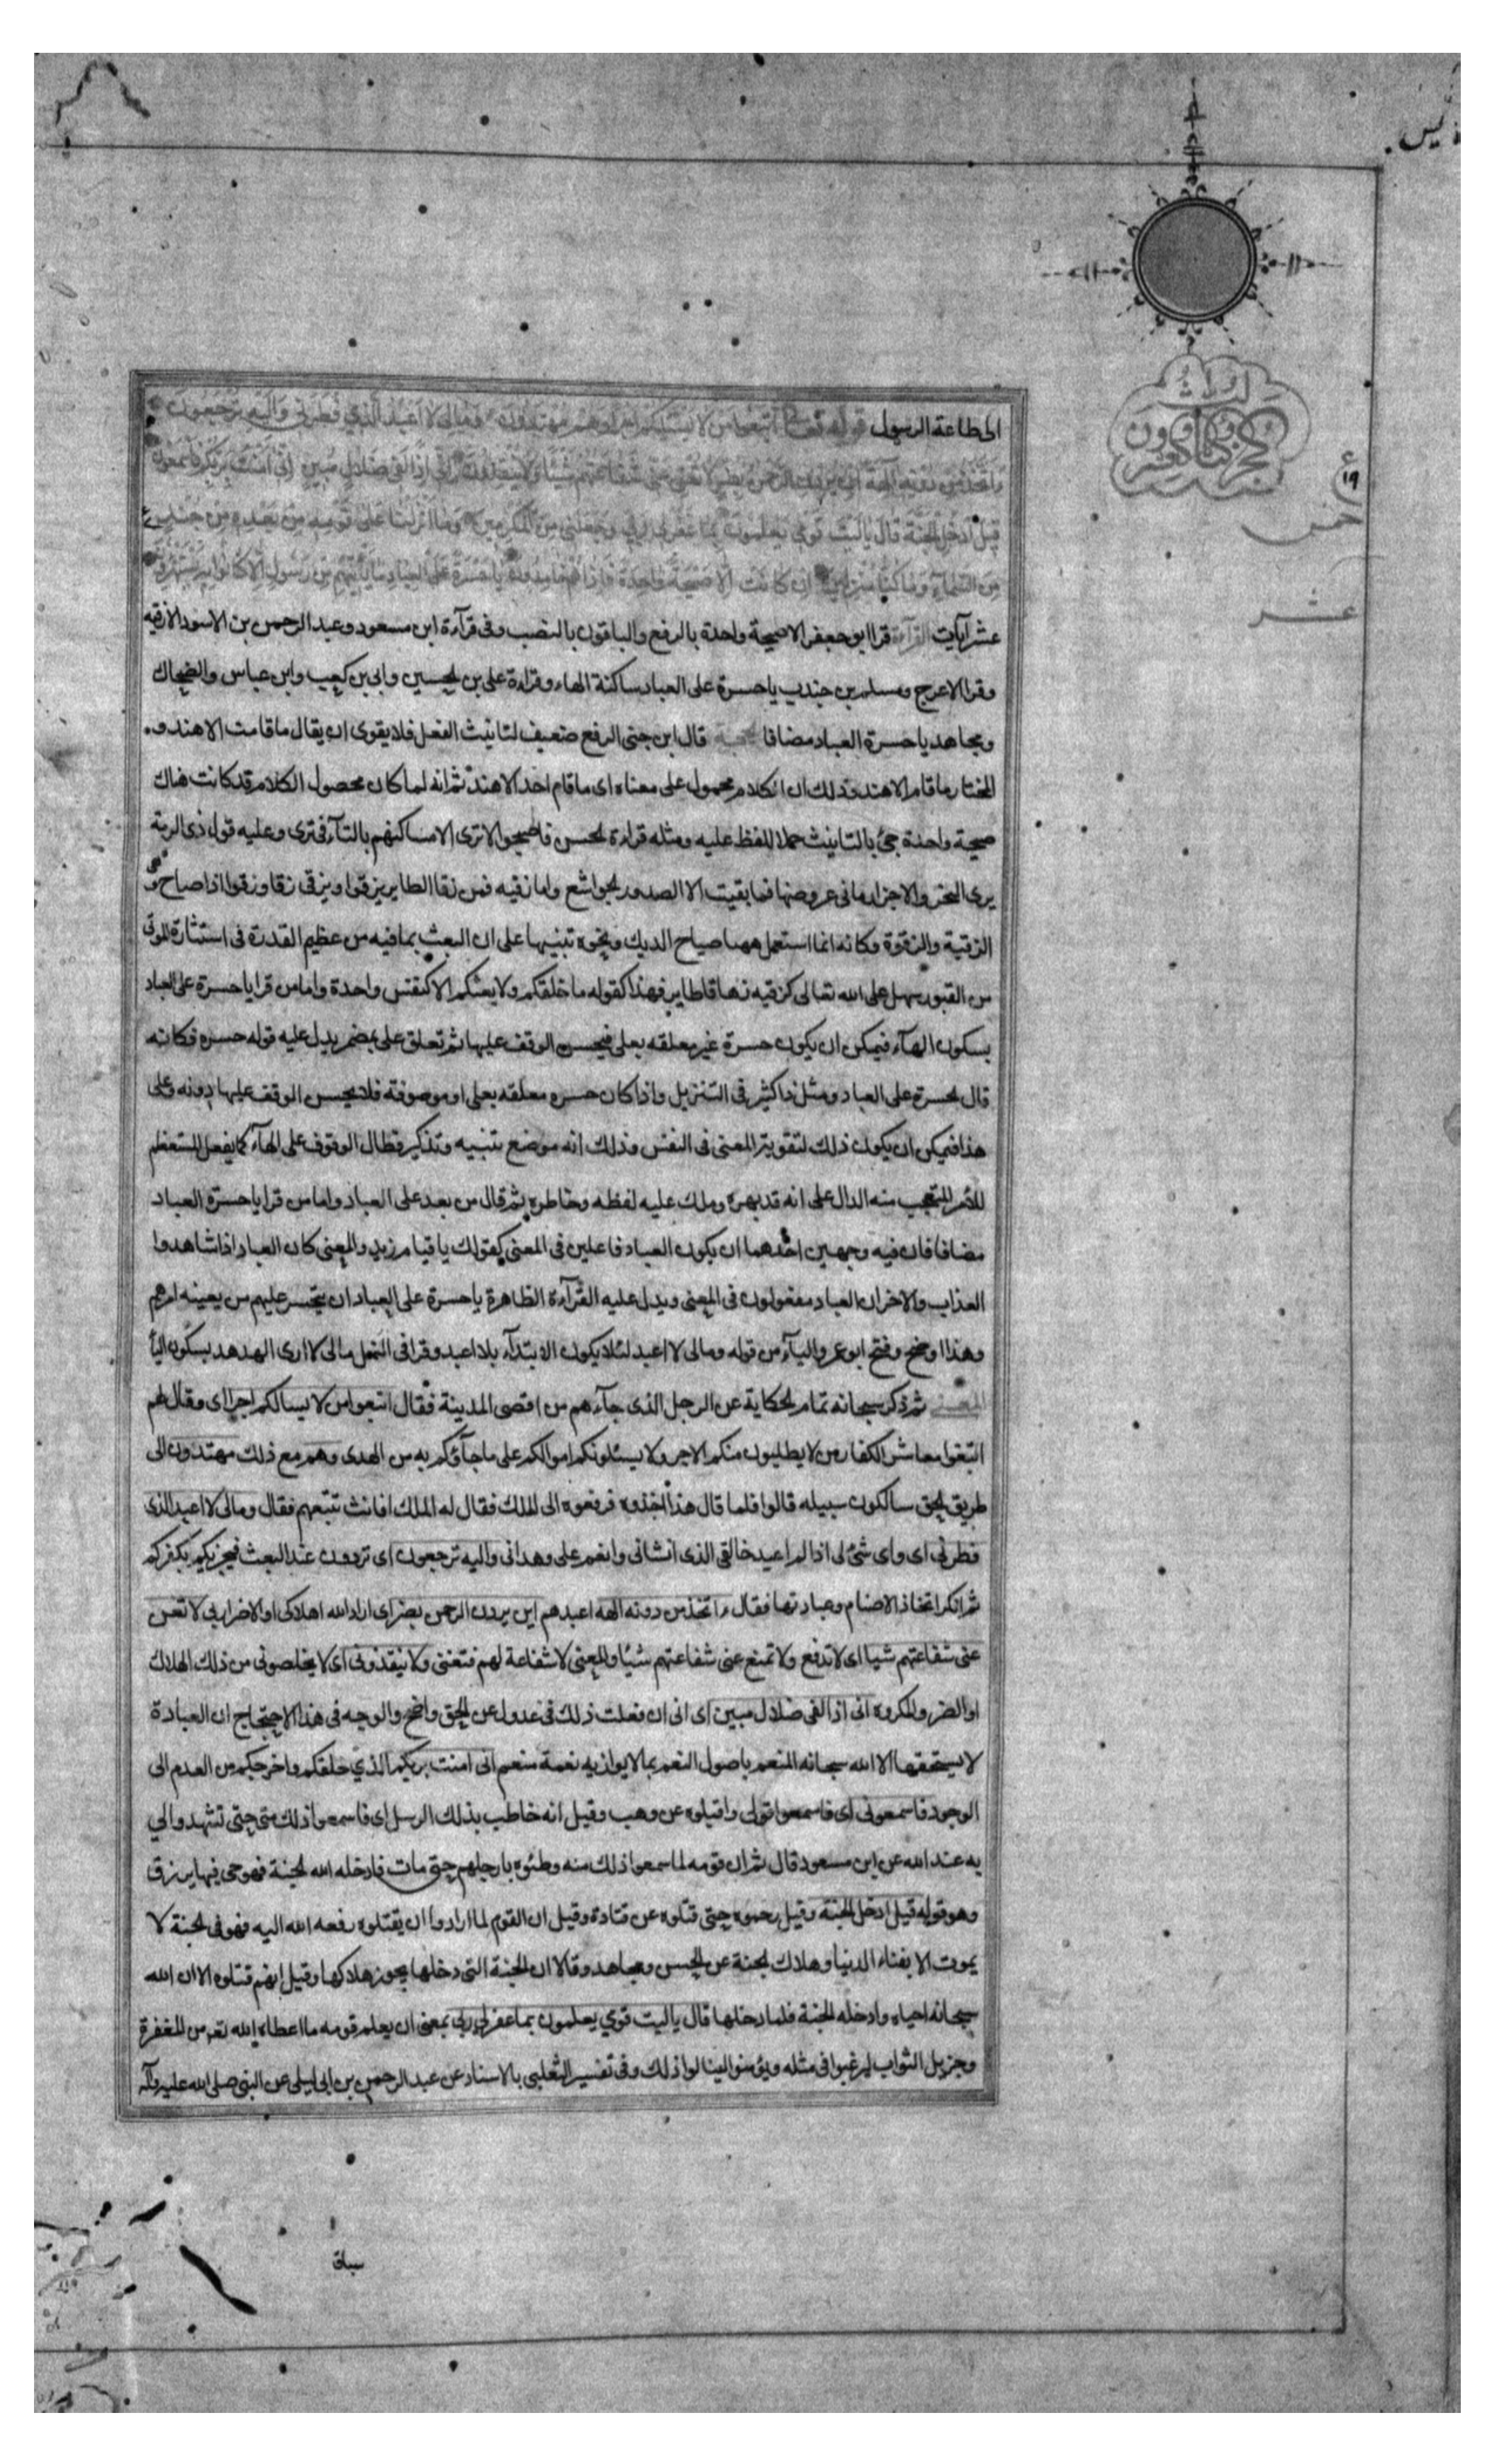 الى طاعة الرسول قوله تعالى اتبعوا من لا يسئلكم اجرا وهم مهتدون وما لي لا اعبد الذي فطرني واليه ترجعون
ءاتخذ من دونه آلهة ان يردن الرحمن بضر لا تغن عني شفاعتهم شيئا ولا ينقذون اني اذا لفي ضلال مبين اني امنت بربكم فاسمعون
قيل ادخل الجنة قال يا ليت قومي يعلمون بما غفر لي ربي وجعلني من المكرمين وما انزلنا على قومه من بعده من جند
من السماء وما كنا منزلين ان كانت الا صيحة واحدة فاذا هم خامدون يا حسرة على العباد ما ياتيهم من رسول الا كانوا به يستهزؤن
عشر آيات القرآءة قرا ابو جعفر الا صيحة واحدة بالرفع والباقون بالنصب وفى قرآءة ابن مسعود وعبد الرحمن بن الاسود الا زقيه
وقرا الاعرج ومسلم بن جندب يا حسرة على العباد ساكنة الهاء وقراءة على بن الحسين وابى بن كعب وابن عباس والضحاك
ومجاهد يا حسرة العباد مضافا الحجة قال ابن جنى الرفع ضعيف لتانيث الفعل فلا يقوى ان يقال ما قامت الا هند و
المختار ما قام الا هند وذلك ان الكلام محمول على معناه اى ما قام احد الا هند ثم انه لما كان محصول الكلام قد كانت هناك
صيحة واحدة جئ بالتانيث حملا للفظ عليه ومثله قراءة الحسن فاصبحوا لا ترى الا مساكنهم بالتآء فى ترى وعليه قول ذى الرمة
يرى النحز والاجراز ما فى غروضها فما بقيت الا الصدور الجراشع واما زقيه فمن زقا الطاير يزقوا ويزقى زقا وزقوا اذا صاح و
الزقية والزقوة وكانه انما استعمل ههنا صياح الديك ونحوه تنبيها على ان البعث بما فيه من عظيم القدرة فى استثارة الموتى
من القبور سهل على الله تعالى كزقيه زهاقا طاير فهذا كقوله ما خلقكم ولا بعثكم الا كنفس واحدة واما من قرا يا حسرة على العباد
بسكون الهآء فيمكن ان يكون حسرة غير معلقه بعلى فيحسن الوقف عليها ثم تعلق على بمضمر يدل عليه قوله حسره فكانه
قال الحسرة على العباد ومثل ذا كثير فى التنزيل واذا كان حسره معلقه بعلى او موصوفة فلا يحسن الوقف عليها دونه وعلى
هذا فيمكن ان يكون ذلك لتقوية المعنى فى النفس وذلك انه موضع تنبيه وتذكير فطال الوقوف على الهآء كما يفعل المستعظم
للامر المتعجب منه الدال على انه قد بهره وملك عليه لفظه وخاطره ثم قال من بعد على العباد واما من قرا يا حسرة العباد
مضافا فان فيه وجهين احدهما ان يكون العباد فاعلين فى المعنى كقولك يا قيام زيد والمعنى كان العباد اذا شاهدوا
العذاب والاخر ان العباد مفعولون فى المعنى ويدل عليه القرآءة الظاهرة يا حسرة على العباد ان يتحسر عليهم من يعينه امرهم
وهذا اوضح وفتح ابو عمرو اليآء من قوله ومالى لا اعبد لئلا يكون الابتدآء بلا اعبد وقرا فى النمل مالى لا ارى الهدهد بسكون اليآء
المعنى ثم ذكر سبحانه تمام الحكاية عن الرجل الذى جآءهم من اقصى المدينة فقال اتبعوا من لا يسالكم اجرا اى وقال لهم
اتبعوا معاشر الكفار من لا يطلبون منكم الاجر ولا يسئلونكم اموالكم على ما جآؤكم به من الهدى وهم مع ذلك مهتدون الى
طريق الحق سالكون سبيله قالوا فلما قال هذا اخذوه فرفعوه الى الملك فقال له الملك افانت تتبعهم فقال ومالى لا اعبد الذى
فطرني اى واى شئ لى اذا لم اعبد خالقى الذى انشانى وانعم على وهدانى واليه ترجعون اى تردون عند البعث فيجزيكم بكفركم
ثم انكر اتخاذ الاصنام وعبادتها فقال ءاتخذ من دونه الهه اعبدهم ان يردن الرحمن بضر اى اراد الله اهلاكى او الاضرار بي لا تغن
عنى شفاعتهم شيا اى لا تدفع ولا تمنع عنى شفاعتهم شيئا والمعنى لا شفاعة لهم فتغنى ولا ينقذونى اى لا يخلصونى من ذلك الهلاك
او الضر والمكروه انى اذا لفى ضلال مبين اى انى ان فعلت ذلك فى عدول عن الحق واضح والوجه فى هذا الاحتجاج ان العبادة
لا يستحقها الا الله سبحانه المنعم باصول النعم بما لا يوازيه نعمة منعم انى امنت بربكم الذي خلقكم واخرجكم من العدم الى
الوجود فاسمعونى اى فاسمعوا قولى واقبلوه عن وهب وقيل انه خاطب بذلك الرسل اى فاسمعوا ذلك منى حتى تشهدوا لي
به عند الله عن ابن مسعود قال ثم ان قومه لما سمعوا ذلك منه وطئوه بارجلهم حتى مات فادخله الله الجنة فهو حى فيها يرزق
وهو قوله قيل ادخل الجنة وقيل رجموه حتى قتلوه عن قتادة وقيل ان القوم لما ارادوا ان يقتلوه رفعه الله اليه فهو فى الجنة لا
يموت الا بفناء الدنيا وهلاك الجنة عن الحسن ومجاهد وقالا ان الجنة التى دخلها يجوز هلاكها وقيل انهم قتلوه الا ان الله
سبحانه احياه وادخله الجنة فلما دخلها قال يا ليت قومي يعلمون بما غفر لي ربى بمعنى ان يعلم قومه ما اعطاه الله تعه من المغفرة
وجزيل الثواب ليرغبوا فى مثله ويؤمنوا لينالوا ذلك وفى تفسير الثعلبى بالاسناد عن عبد الرحمن بن ابى ليلى عن النبى صلى الله عليه وآله
سباق
١٩
خمس
عشر